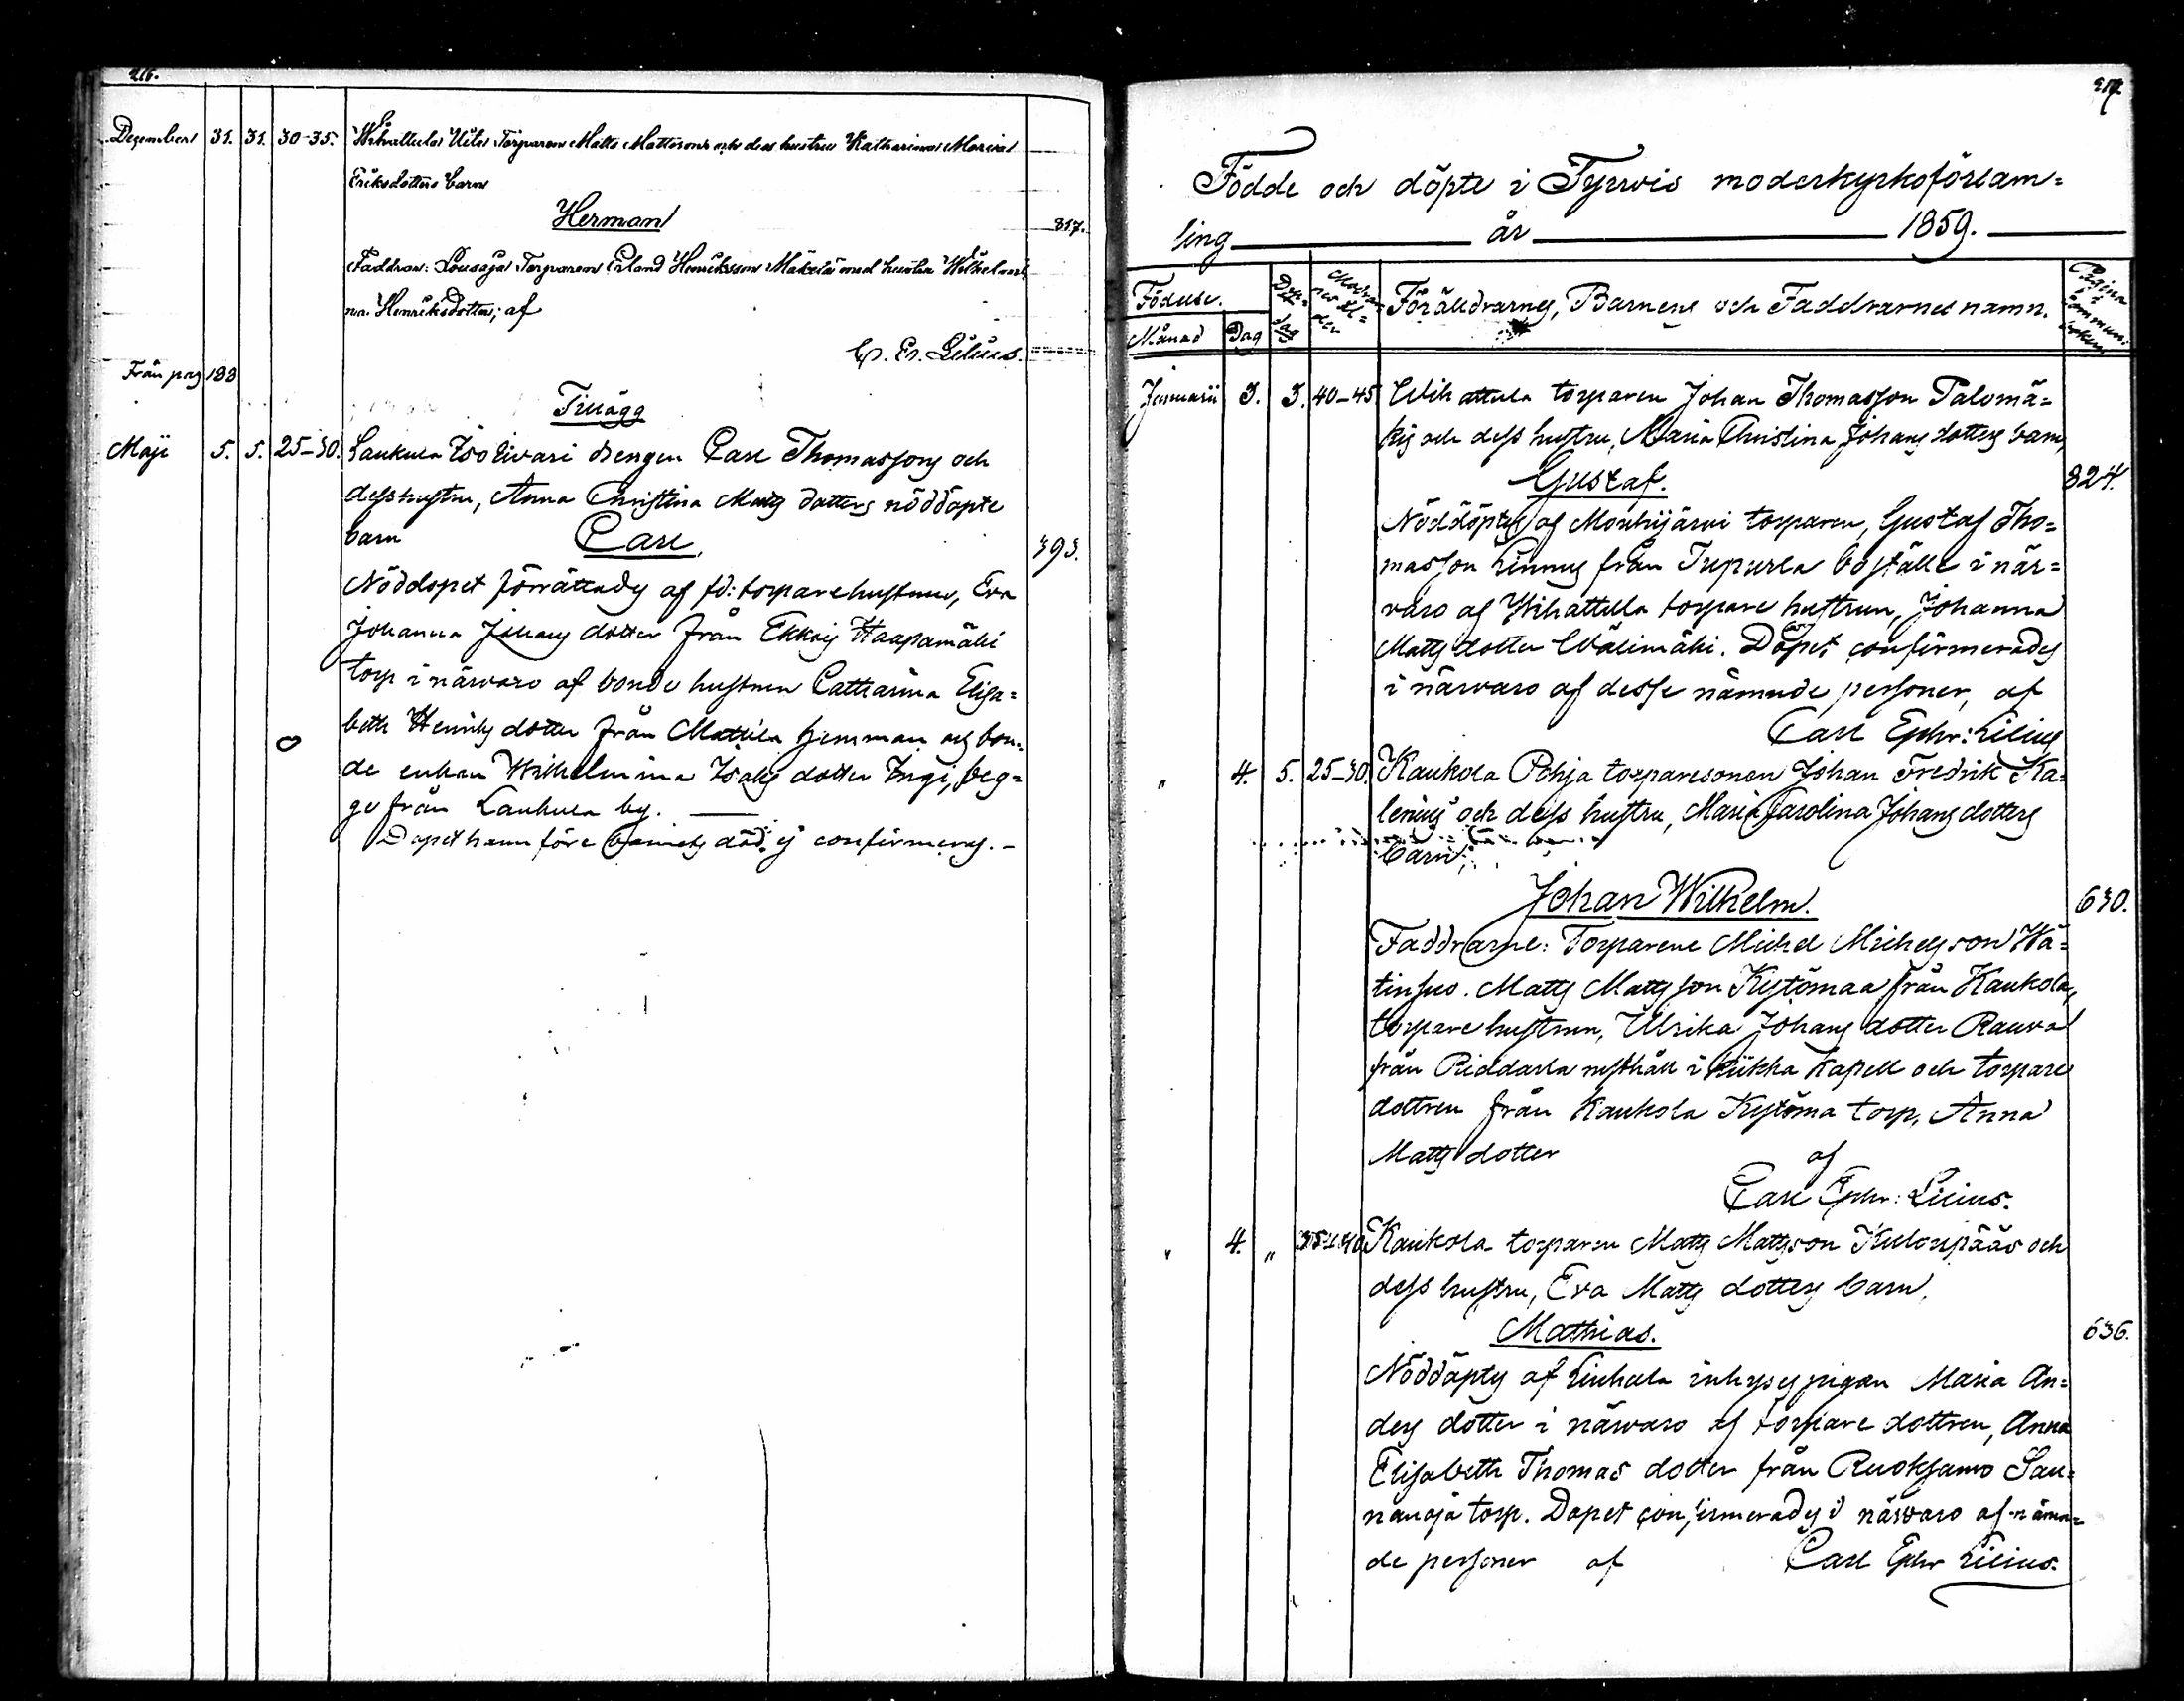 216.
Decembers 31. 31. 30-35. Wihattula Uita Torparen Matts Mattssons och dess hustru Katharina Maria
Eriksdotters barn
Herman 817.
Faddrar: Lousaja Torparen Erland Henriksson Mäkelä med hustru Wilhelmi-
na Henriksdotter; af
C. E. Lilius.
Från pag 188
Tillägg
Maji 5. 5. 25-30. Laukula Iso Eivari drengen Carl Thomassons och
dess hustru, Anna Christina Matts dotters nöddöpte
barn Carl, 393.
Nöddopet förrättades af fd: torparehustrun, Eva
Johanna Johans dotter från Ekkois Haapamäki
torp i närvaro af bonde hustrun Catharina Elisa=
beth Henriks dotter från Mattila hemman och bon=
de enkan Wilhelmina Isaks dotter Ingi, beg=
ge från Laukula by.
Dopet hann före barnets död ej confirmeras. -
217
Födde och döpte i Tyrvis moderkyrkoförsam=
ling år 1859.
Födelse. Döp- Modrar- Föräldrarnes, Barnens och Faddrarnes namn. Pagina
Månad Dag dag
Januarii 3. 3. 40-45 Wihattula torparen Johan Thomasson Palomä=
kis och dess hustru, Maria Christina Johans dotters barn,
Gustaf. 824.
Nöddöptes af Mouhijärvi torparen, Gustaf Tho=
masson Linnus från Tupurla boställe i när=
varo af Wihattula torpare hustrun, Johanna
Matts dotter Wälimäki. Dopet confirmerades
i närvaro af desse nämnde personer, af
Carl Ephr: Lilius
" 4. 5. 25-30. Kaukola Pohja torparesonen Johan Fredrik Ka=
lenius och dess hustru, Maria Carolina Johans dotters
barn;
Johan Wilhelm. 630.
Faddrarne: Torparene Michel Michelsson Wä=
tinsuo. Matts Mattsson Kytömaa från Kaukola,
torpare hustrun, Ulrika Johans dotter Rauva
från Riddarla rusthåll i Kiikka Kapell och torpare
dottren från Kaukola Kytöma torp, Anna
Matts dotter af
Carl Ephr: Lilius.
" 4. " 35-40 Kaukola torparen Matts Mattsson Kulonpääs och
dess hustru, Eva Matts dotters barn,
Mathias. 636.
Nöddöptes af Liuhala inhyses pigan Maria An=
ders dotter i närvaro af torpare dottren, Anna
Elisabeth Thomas dotter från Ruoksamo Sau=
nanoja torp. Dopet confirmerades i närvaro af nämn=
de personer af Carl Ephr Lilius.